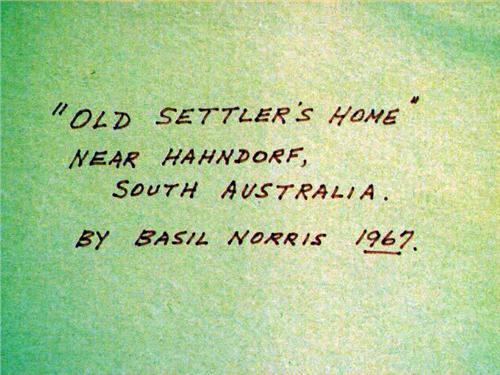 "OLD SETTLER'S HOME"
NEAR HAHNDORF,
SOUTH AUSTRALIA.
BY BASIL NORRIS 1967.